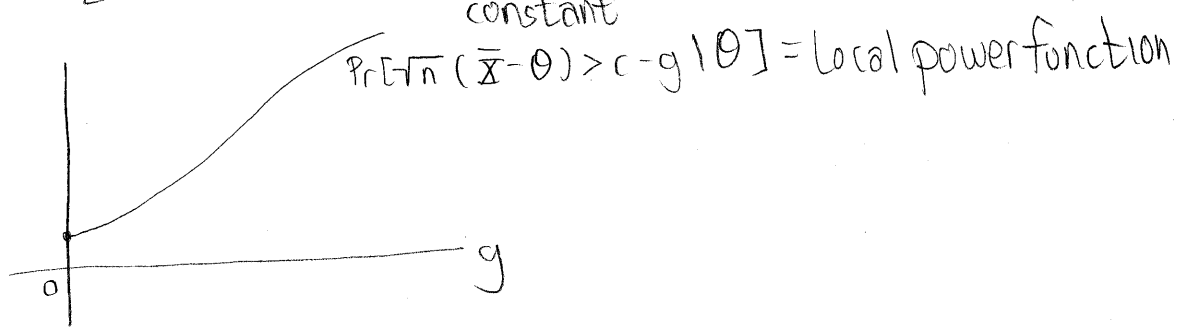 constant
Pr[√n (X̄-θ) > c-g | θ] = Local power function
g
0